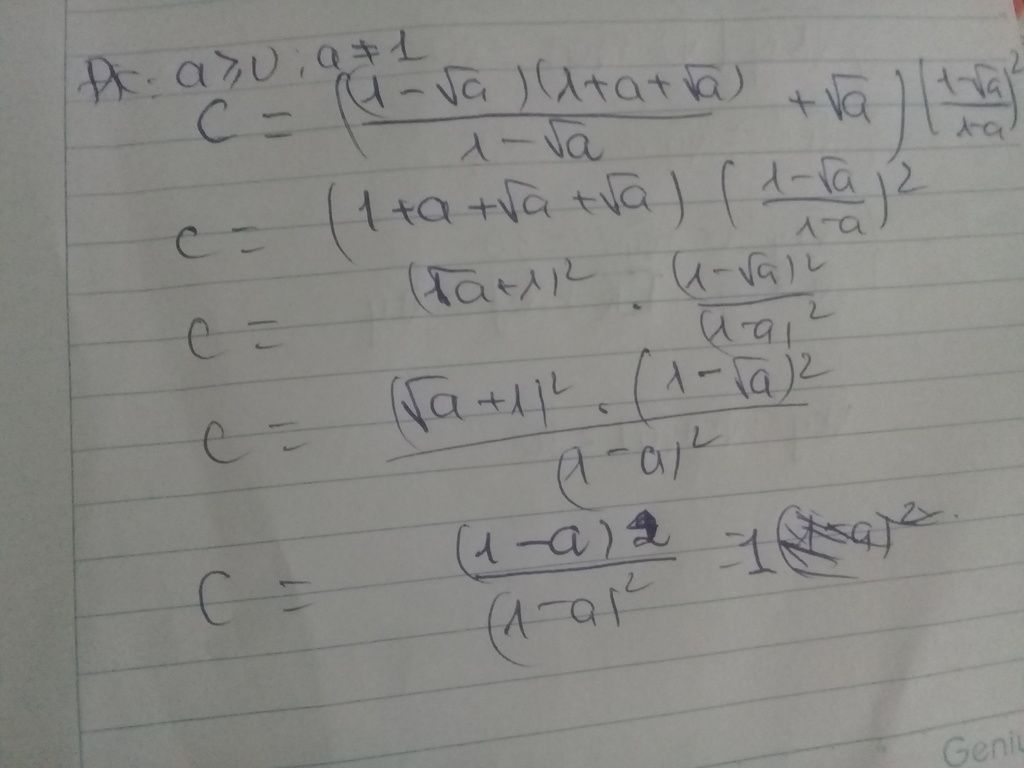 ĐK: a ≥ 0 ; a ≠ 1
C = ( (1 - √a)(1 + a + √a) / 1 - √a + √a ) ( 1 - √a / 1 - a )²
C = (1 + a + √a + √a) ( 1 - √a / 1 - a )²
C = (√a + 1)² . (1 - √a)² / (1 - a)²
C = (√a + 1)² . (1 - √a)² / (1 - a)²
C = (1 - a)2 / (1 - a)² = 1